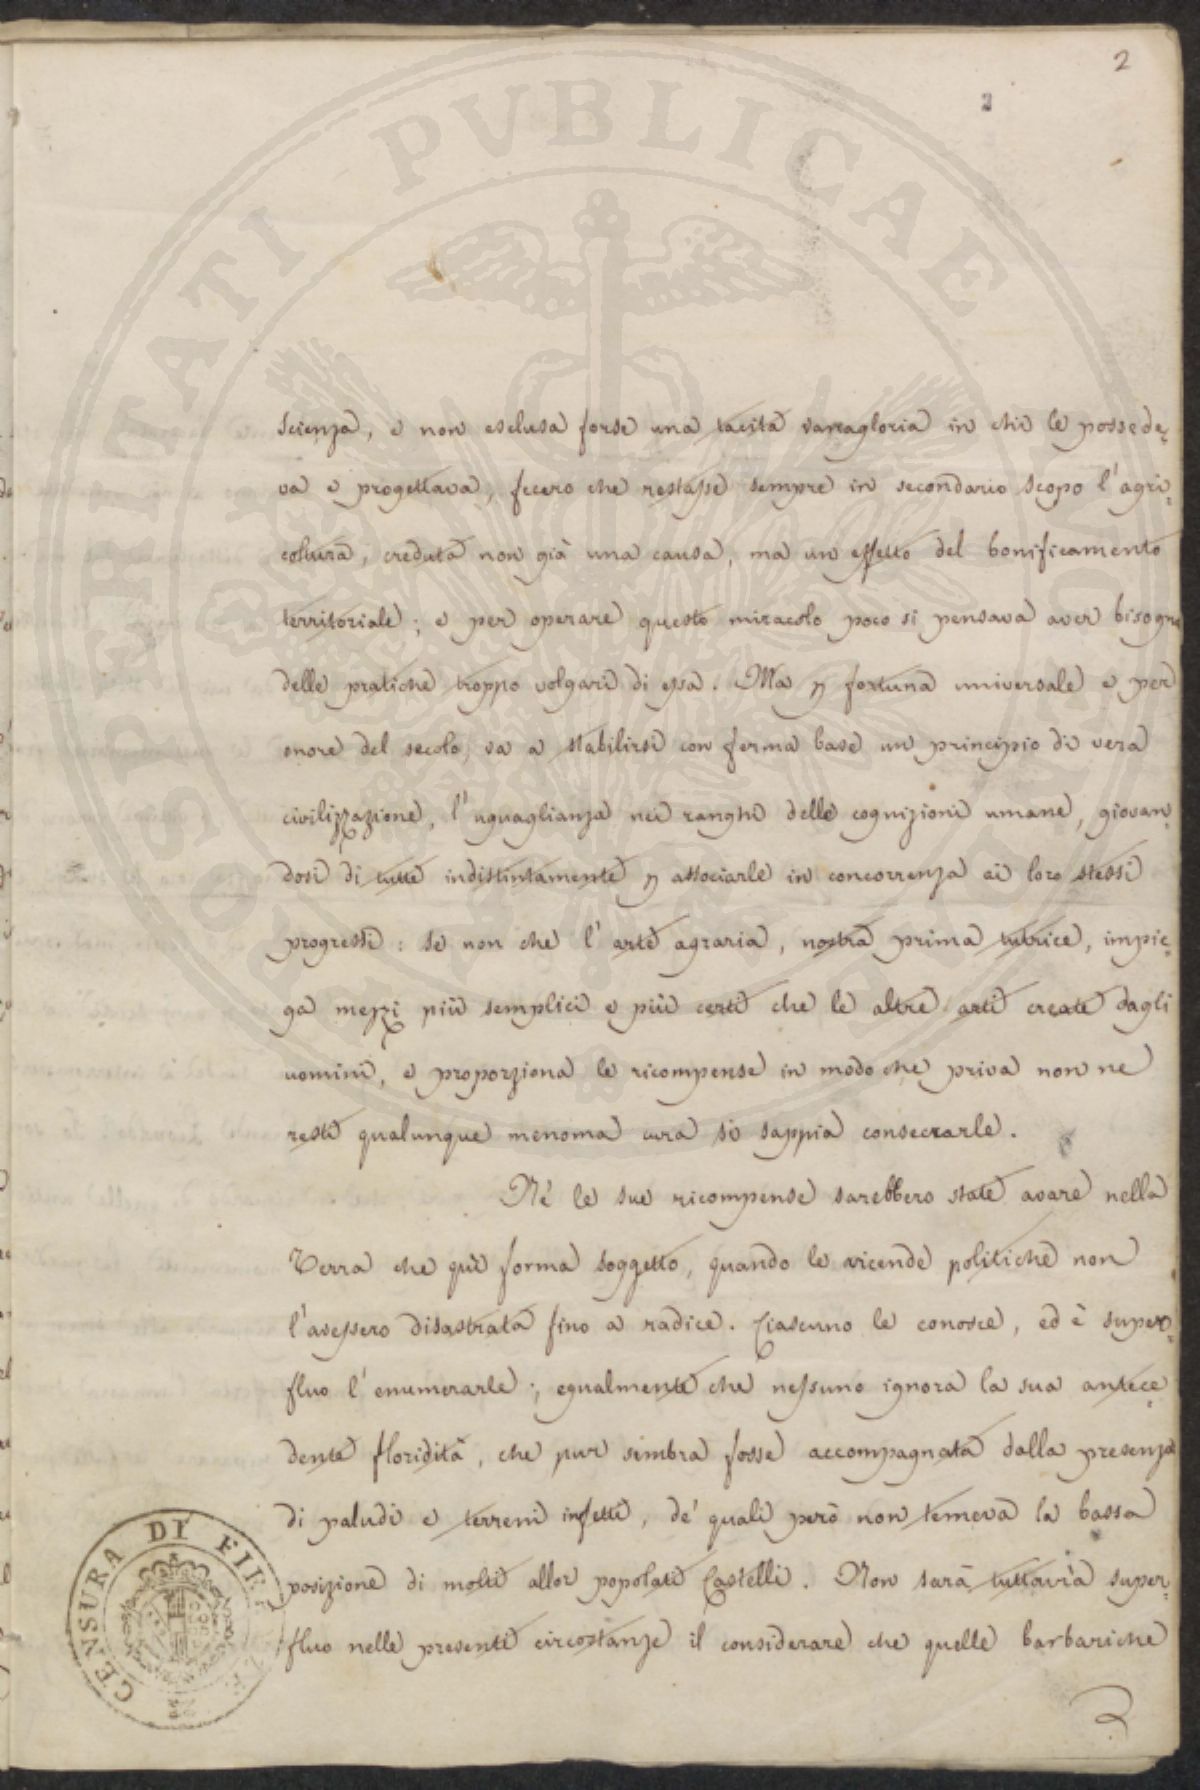 2
2
scienza, e non esclusa forse una tacita vanagloria in chi le possede,
va e progettava, fecero che restasse sempre in secondario scopo l'agri,
coltura, creduta non già una causa, ma un effetto del bonificamento
territoriale; e per operare questo miracolo poco si pensava aver bisogno
delle pratiche troppo volgari di essa. Ma p fortuna universale e per
onore del secolo, va a stabilirsi con ferma base un principio di vera
civilizzazione, l'uguaglianza nei ranghi delle cognizioni umane, giovan,
dosi di tutte indistintamente p associarle in concorrenza ai loro stessi
progressi: se non che l'arte agraria, nostra prima nutrice, impie,
ga mezzi più semplici e più certi che le altre arti create dagli
uomini, e proporziona le ricompense in modo che priva non ne
resti qualunque menoma cura si sappia consecrarle.
Nè le sue ricompense sarebbero state avare nella
Terra che quì forma soggetto, quando le vicende politiche non
l'avessero disastrata fino a radice. Ciascuno le conosce, ed è super,
fluo l'enumerarle; egualmente che nessuno ignora la sua antece,
dente floridità, che pur sembra fosse accompagnata dalla presenza
di paludi e terreni infetti, de' quali però non temeva la bassa
posizione di molti allor popolati Castelli. Non sarà tuttavia super,
fluo nelle presenti circostanze il considerare che quelle barbariche
CENSURA DI FIRENZE
HOSPITALITATI PUBLICAE